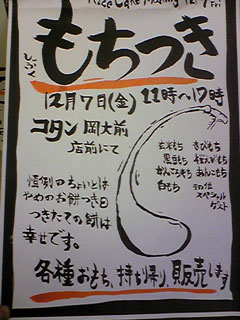 Rice Cake Making 12/7 Fri
もちつき
12月7日(金) 11時〜17時
コタン 岡大前
店前にて
玄米もち きびもち
黒豆もち 桜えびもち
かんころもち あんこもち
白もち その他
スペシャル
ゲスト
恒例のちょいとは
やめのお餅つき日
つきたての餅は
幸せです。
各種おもち、持ち帰り、販売します